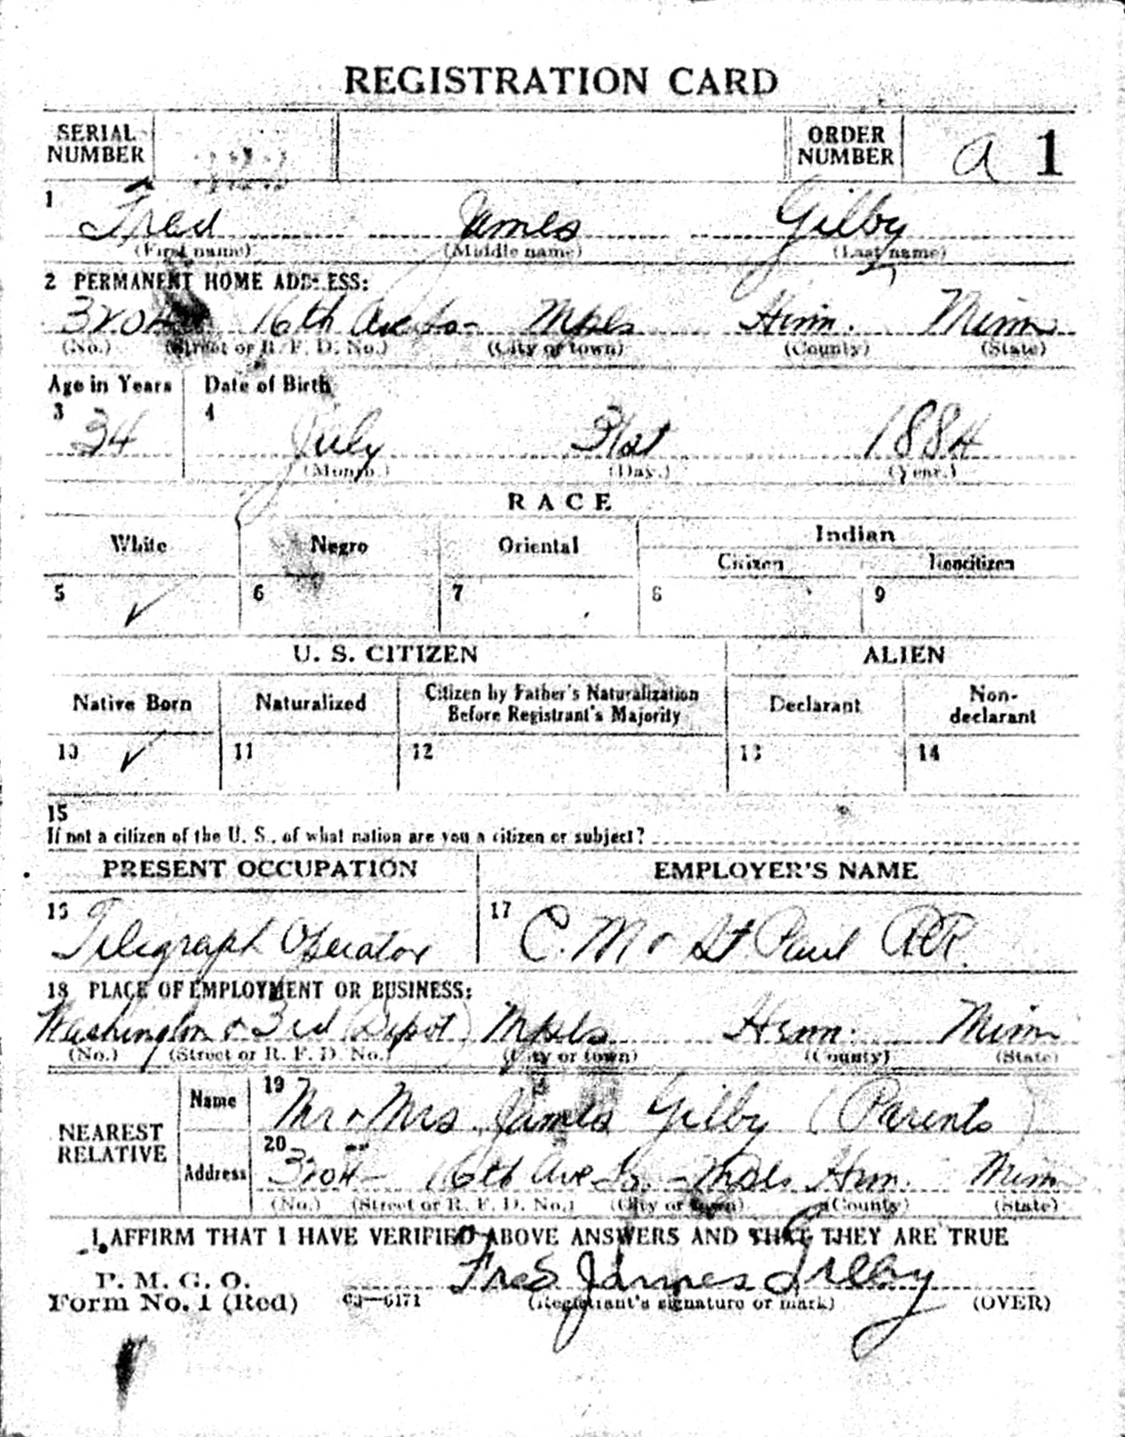 REGISTRATION CARD
SERIAL NUMBER ORDER NUMBER a 1
1 Fred James Gilby
(First name) (Middle name) (Last name)
2 PERMANENT HOME ADDRESS:
3204 16th Ave So- Mpls Henn. Minn
(No.) (Street or R. F. D. No.) (City or town) (County) (State)
Age in Years Date of Birth
3 34 4 July 31st 1884
(Month.) (Day.) (Year.)
RACE
White Negro Oriental Indian
Citizen Noncitizen
5 ✓ 6 7 8 9
U. S. CITIZEN ALIEN
Native Born Naturalized Citizen by Father's Naturalization Before Registrant's Majority Declarant Non-declarant
10 ✓ 11 12 13 14
15
If not a citizen of the U. S., of what nation are you a citizen or subject?
PRESENT OCCUPATION EMPLOYER'S NAME
16 Telegraph Operator 17 C. M & St Paul RR.
18 PLACE OF EMPLOYMENT OR BUSINESS:
Washington & 3rd (Depot) Mpls Henn. Minn
(No.) (Street or R. F. D. No.) (City or town) (County) (State)
NEAREST RELATIVE
Name 19 Mr & Mrs. James Gilby (Parents)
Address 20 3204- 16th Ave So. - Mpls Henn. Minn
(No.) (Street or R. F. D. No.) (City or town) (County) (State)
I AFFIRM THAT I HAVE VERIFIED ABOVE ANSWERS AND THAT THEY ARE TRUE
P. M. G. O.
Form No. 1 (Red) 03—6171 Fred James Gilby
(Registrant's signature or mark) (OVER)